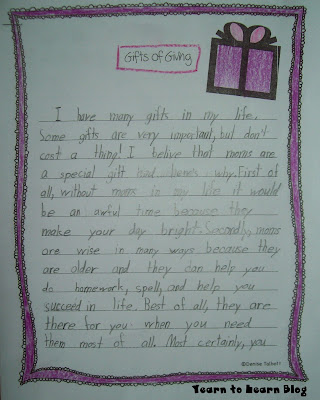 Gifts of Giving
I have many gifts in my life.
Some gifts are very important, but don't
cost a thing! I belive that moms are
a special gift why. First of
all, without moms in my life it would
be an awful time because they
make your day bright. Secondly, moms
are wise in many ways because they
are older and they can help you
do homework, spell, and help you
succeed in life. Best of all, they are
there for you when you need
them most of all. Most certainly, you
©Denise Talbott
Learn to Learn Blog